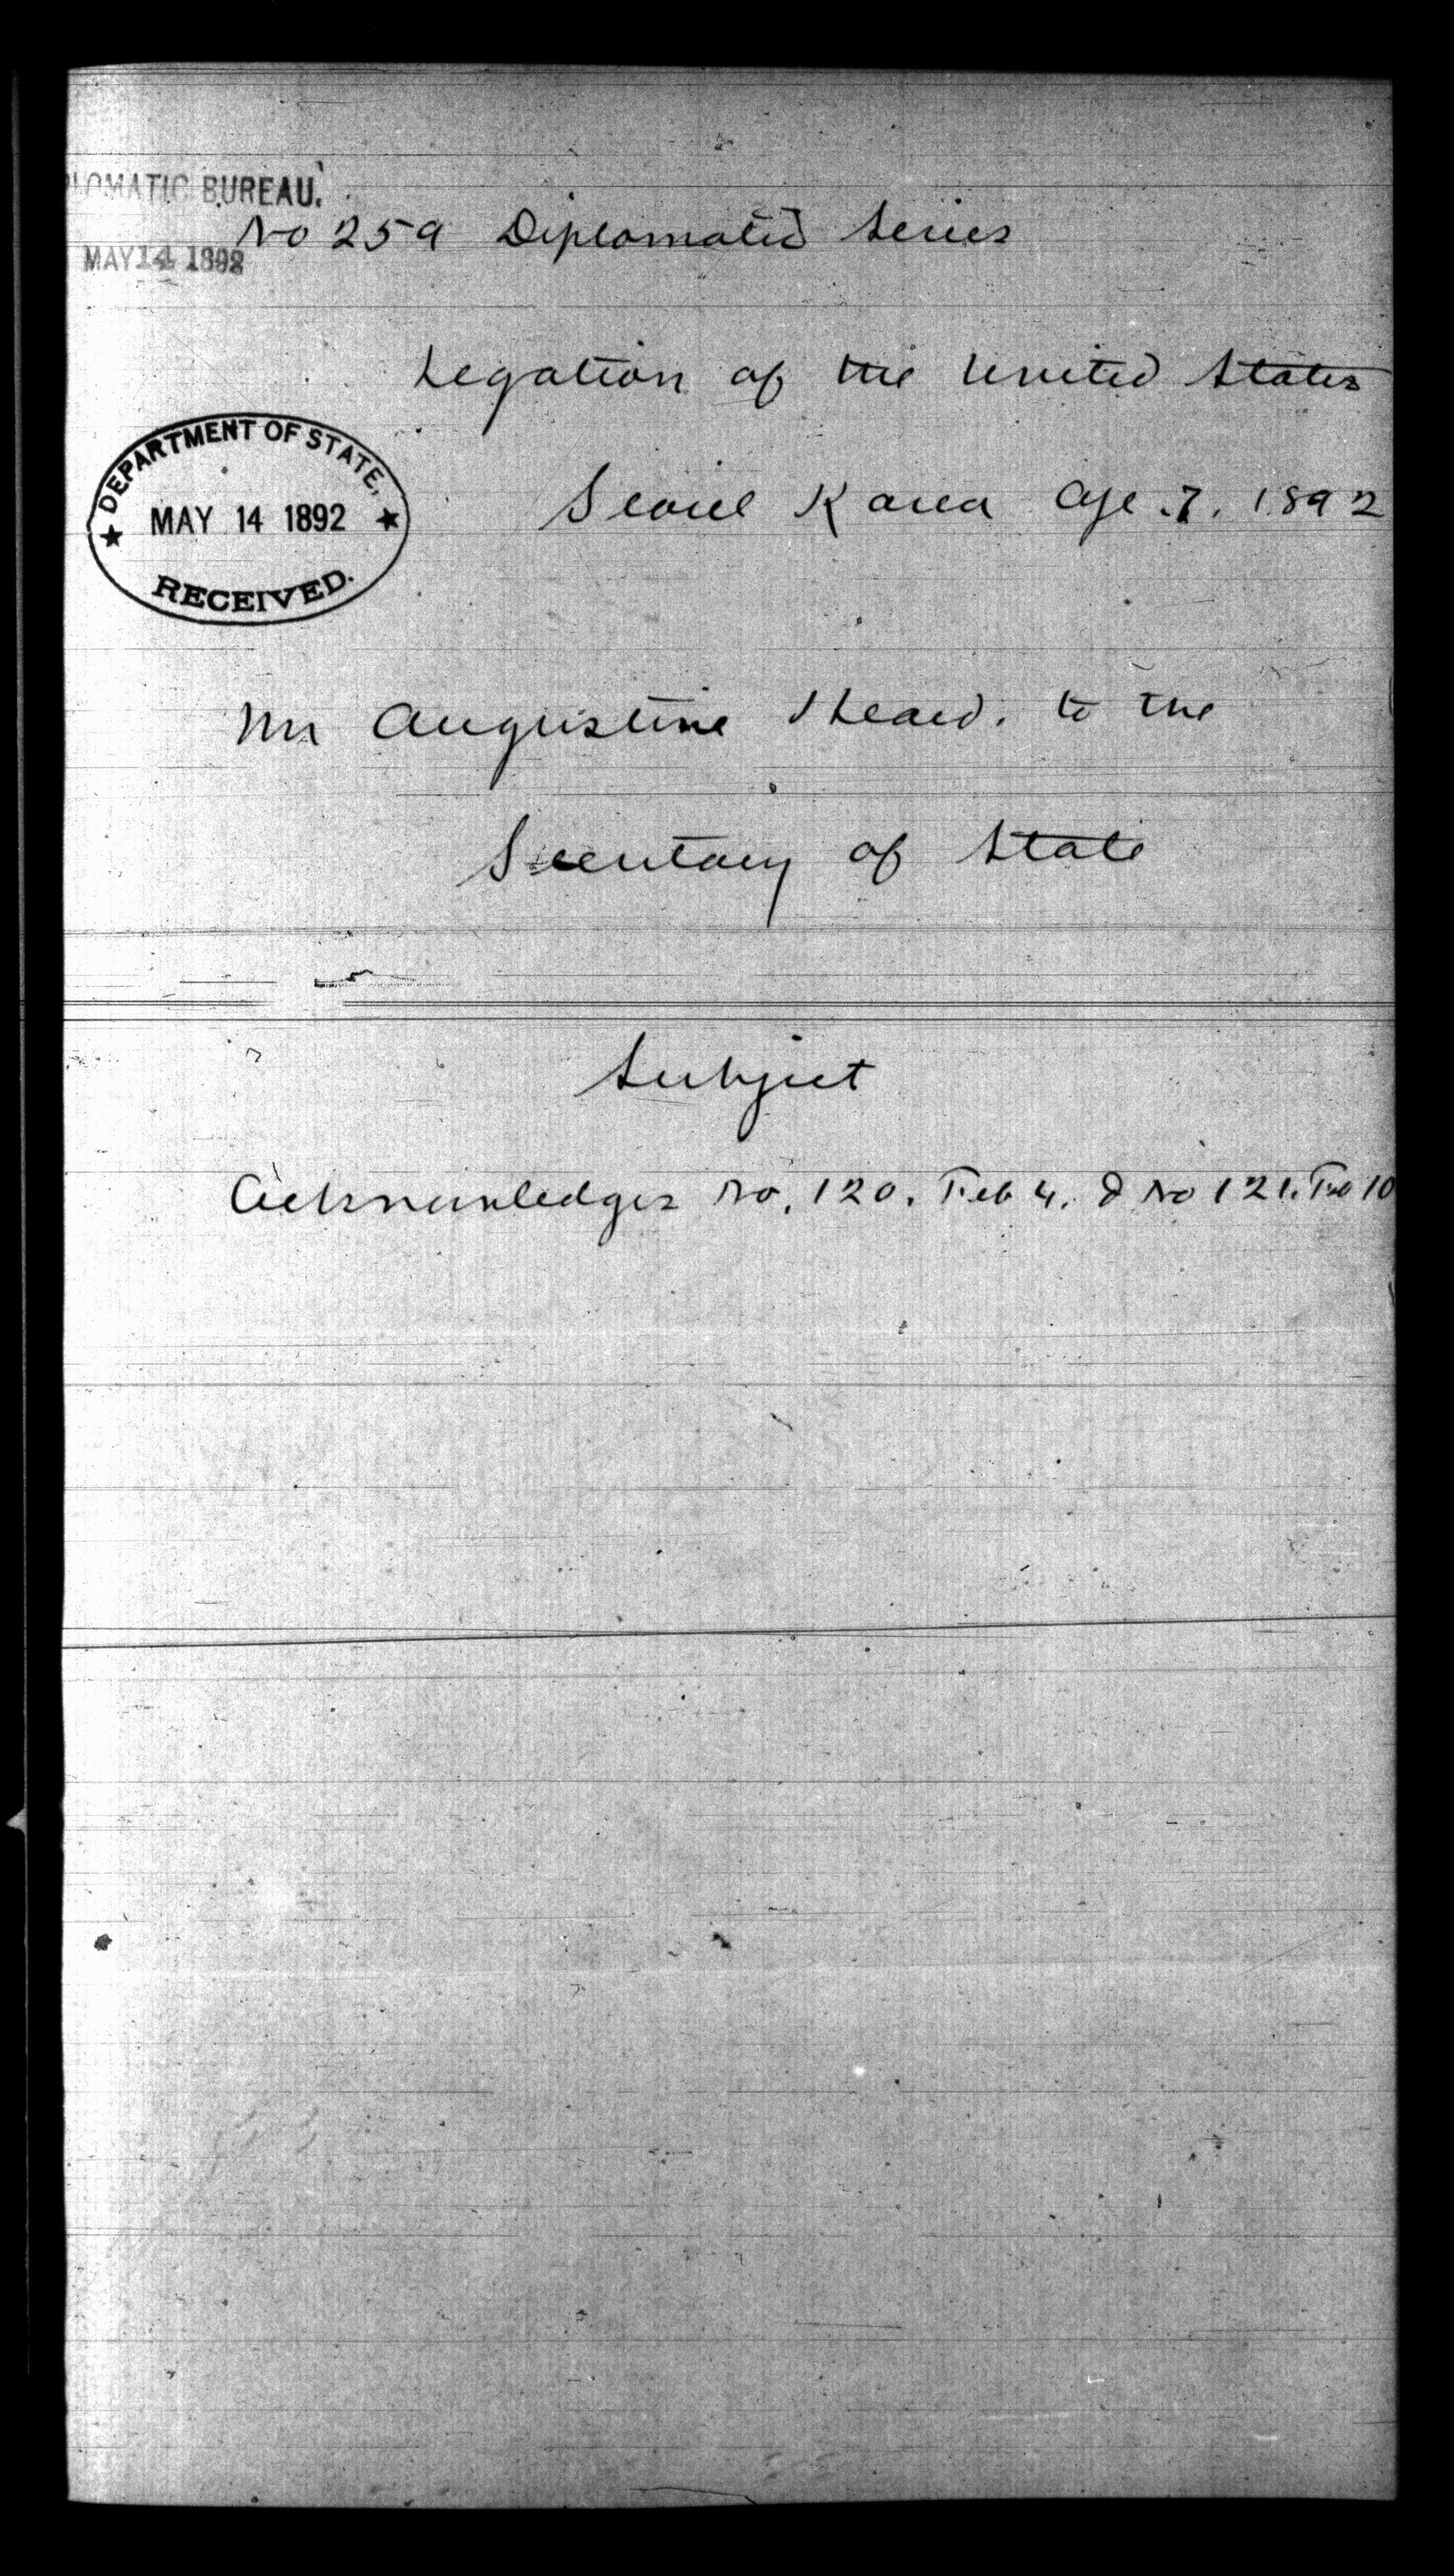 DIPLOMATIC BUREAU.
No 259 Diplomatic Series
MAY 14 1892
Legation of the United States
DEPARTMENT OF STATE,
MAY 14 1892
RECEIVED.
Seoul Korea Apl. 7. 1892
Mr Augustine Heard. to the
Secretary of State
Subject
Acknowledges No. 120. Feb 4. & No 121. Feb 10